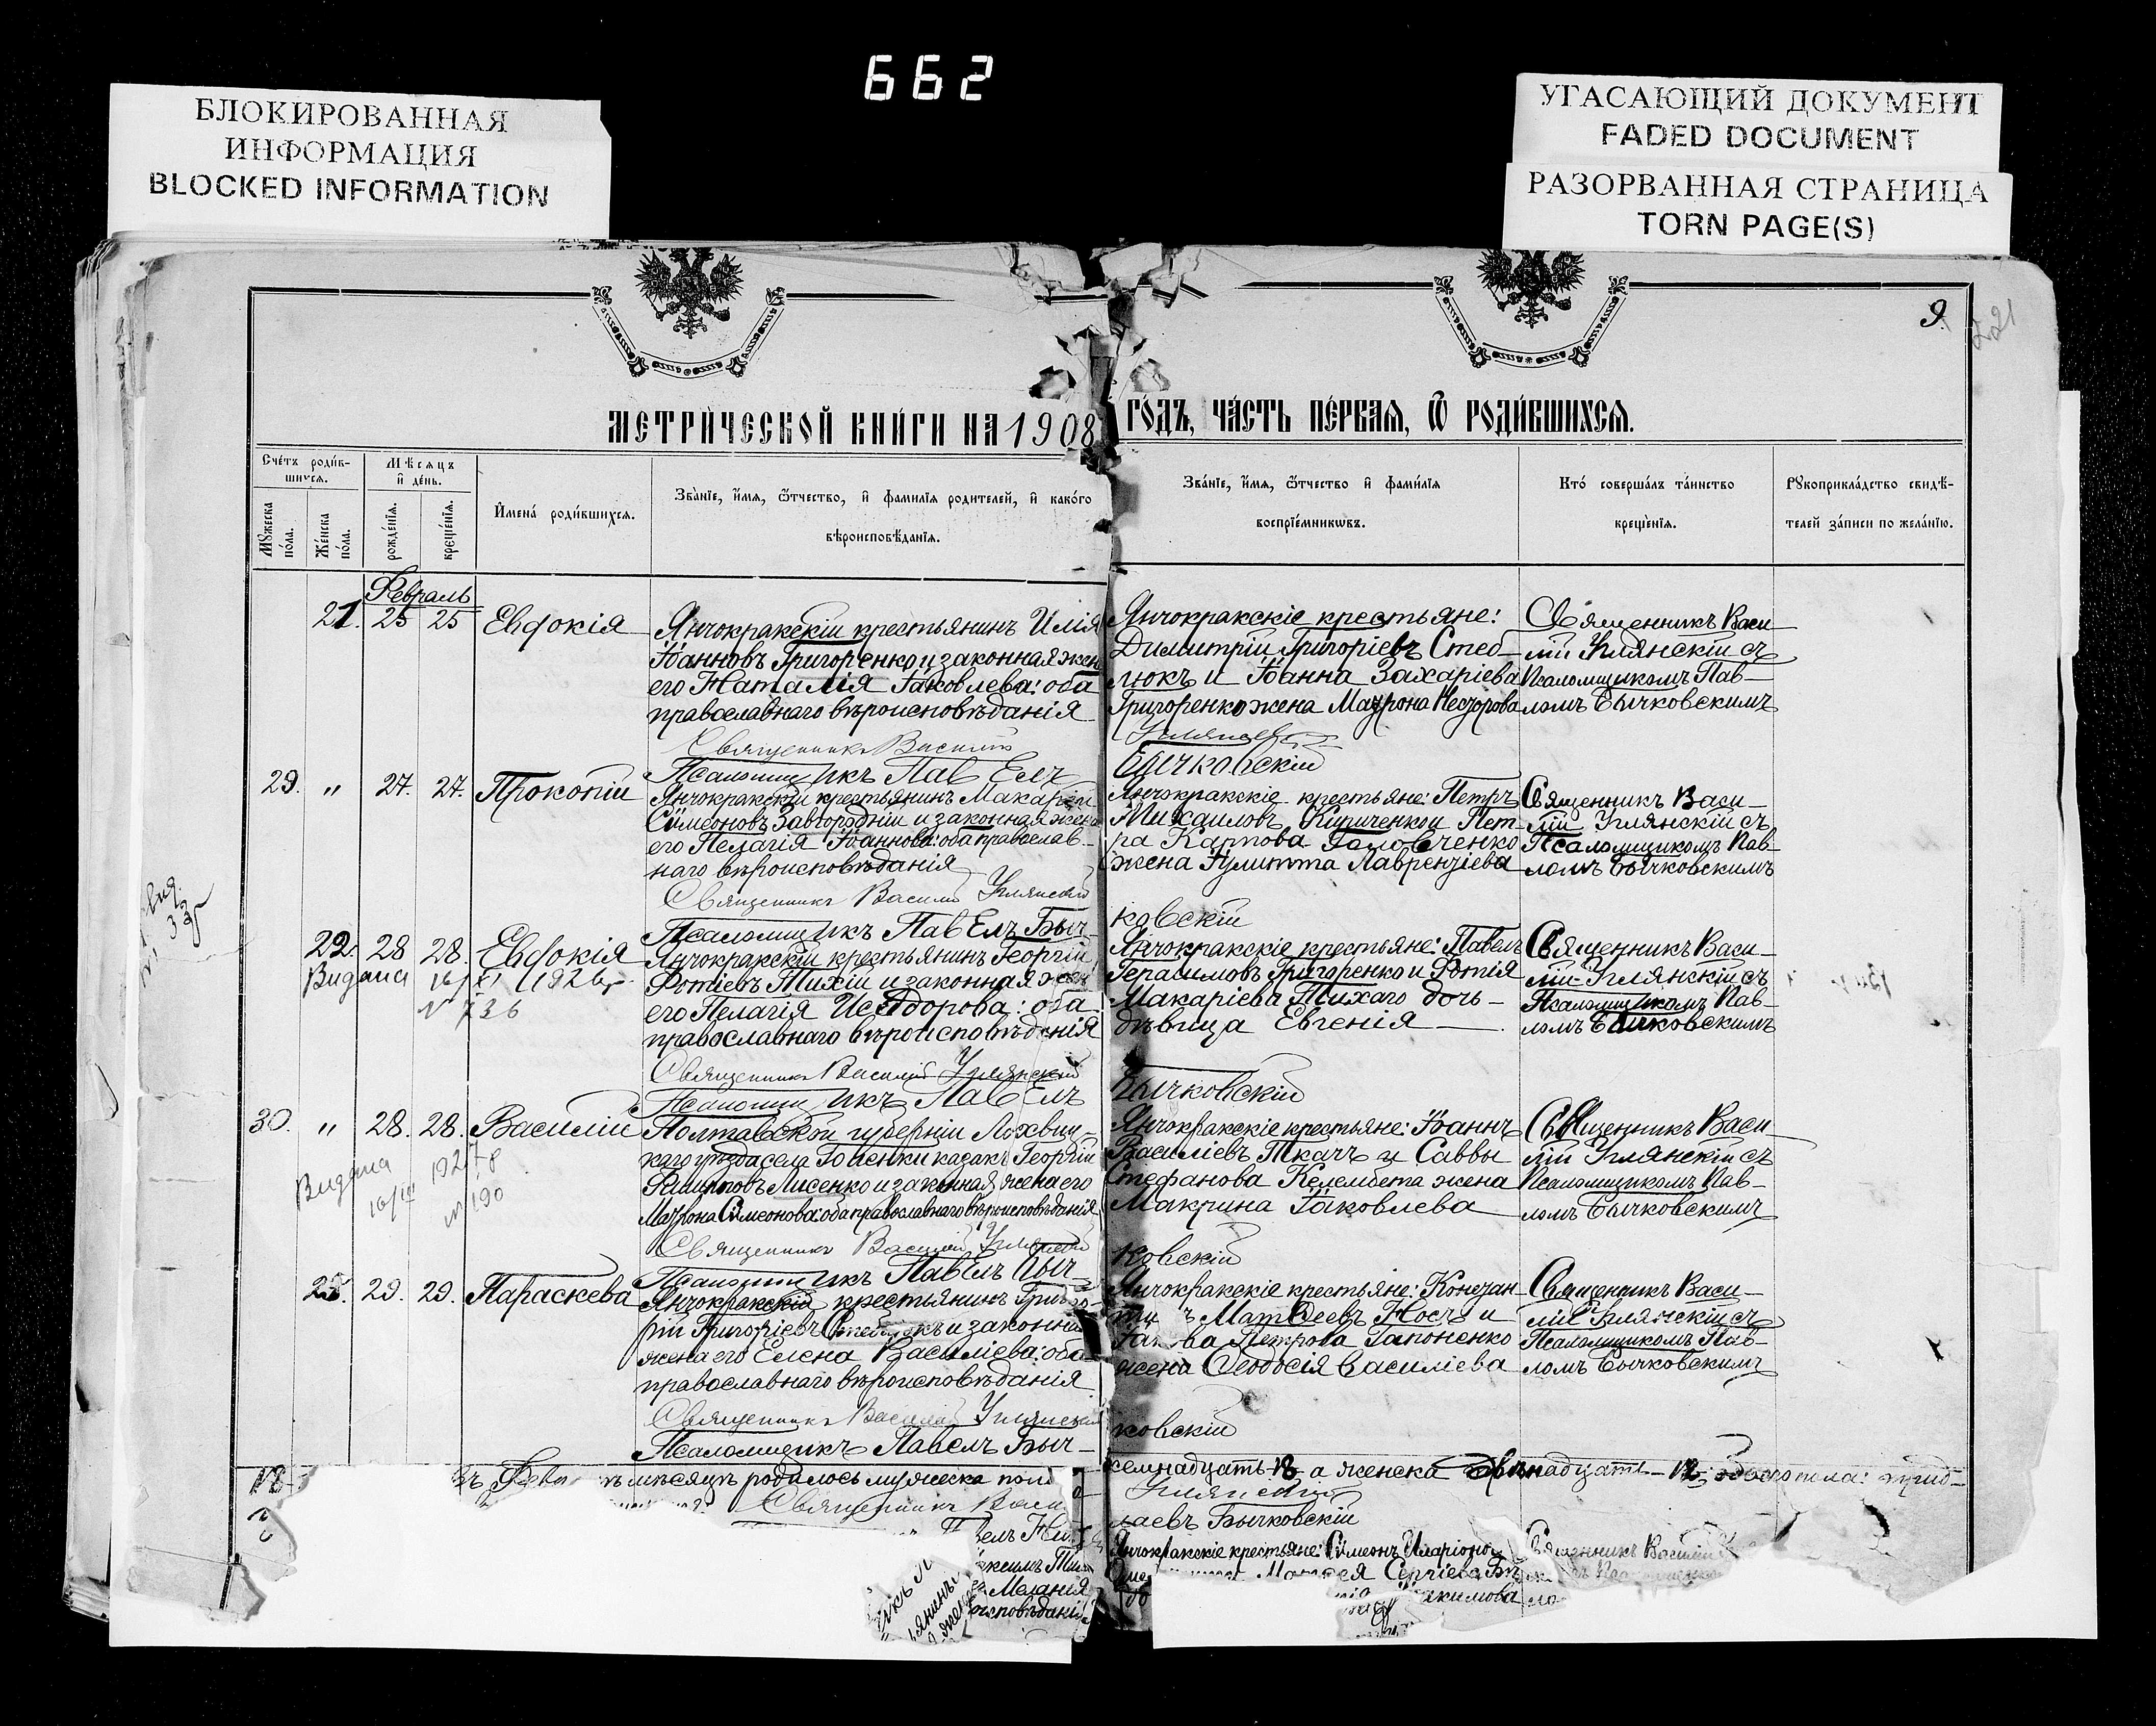 662
БЛОКИРОВАННАЯ
ИНФОРМАЦИЯ
BLOCKED INFORMATION
УГАСАЮЩИЙ ДОКУМЕНТ
FADED DOCUMENT
РАЗОРВАННАЯ СТРАНИЦА
TORN PAGE(S)
9.
221
МЕТРИЧЕСКОЙ КНИГИ НА 1908 ГОДЪ, ЧАСТЬ ПЕРВАЯ, Ѿ РОДИВШИХСЯ.
Счетъ родив-
шихся.
Мужеска пола.
Женска пола.
Мѣсяцъ
и день.
рожденія.
крещенія.
Имена родившихся.
Званіе, имя, ѿтчество, и фамилія родителей, и какого
вѣроисповѣданія.
Званіе, имя, ѿтчество и фамилія
воспріемниковъ.
Кто совершалъ таинство
крещенія.
Рукоприкладство свидѣ-
телей записи по желанію.
Февраль
21. 25 25 Евдокія
Янчокракскій крестьянинъ Илія
Іоанновъ Григоренко и законная жена
его Наталія Іаковлева: оба
православнаго вѣроисповѣданія
Янчокракскіе крестьяне:
Димитрій Григоріевъ Стеб-
люкъ и Іоанна Захаріева
Григоренко жена Маѵрона
Священникъ Васи-
лій Углянскій съ
Псаломщикомъ Пав-
ломъ Бычковскимъ
Священникъ Василій
Псаломщикъ Павелъ Бычковскій
29. " 27. 27. Прокопій
Янчокракскій крестьянинъ Макарій
Сѵмеоновъ Завгородній и законная жена
его Пелагія Іоаннова: оба православ-
наго вѣроисповѣданія
Янчокракскіе крестьяне: Петръ
Михаиловъ Кириченко и Пет-
ра Карпова Головченко
жена Іулитта Лаврентіева
Священникъ Васи-
лій Углянскій съ
Псаломщикомъ Пав-
ломъ Бычковскимъ
Священникъ Василій Углянскій
Псаломщикъ Павелъ Бычковскій
22. 28 28. Евдокія
Видана 16/XI 1926 г.
№ 736
Янчокракскій крестьянинъ Георгій
Фотіевъ Тихій и законная жена
его Пелагія Исидорова: оба
православнаго вѣроисповѣданія
Янчокракскіе крестьяне: Павелъ
Герасимовъ Григоренко и Фотія
Макаріева Тихаго дочь-
дѣвица Евгенія
Священникъ Васи-
лій Углянскій съ
Псаломщикомъ Пав-
ломъ Бычковскимъ
Священникъ Василій Углянскій
Псаломщикъ Павелъ Бычковскій
30. " 28. 28. Василій
Видана
16/III 1927 г
№ 190
Полтавской губерніи Лохвиц-
каго уѣзда села казакъ Георгій
Филипповъ Лисенко и законная жена его
Маѵрона Сѵмеонова: оба православнаго вѣроисповѣданія
Янчокракскіе крестьяне: Іоаннъ
Василіевъ Ткачъ и Саввы
Стефанова Келембета жена
Макрина Іаковлева
Священникъ Васи-
лій Углянскій съ
Псаломщикомъ Пав-
ломъ Бычковскимъ
Священникъ Василій Углянскій
Псаломщикъ Павелъ Бычковскій
23. 29. 29. Параскева
Янчокракскій крестьянинъ Григо-
рій Григоріевъ Стеблюкъ и законная
жена его Елена Василіева: оба
православнаго вѣроисповѣданія
Янчокракскіе крестьяне: Констан-
ти ъ Матѳеевъ Носъ и
Іак ва Петрова Гапоненко
жена Ѳеодосія Василіева
Священникъ Васи-
лій Углянскій съ
Псаломщикомъ Пав-
ломъ Бычковскимъ
Священникъ Василій Углянскій
Псаломщикъ Павелъ Бычковскій
мѣсяцѣ родилось мужеска пола
семнадцать а женска
Священникъ Васи
Углянскій
лаевъ Бычковскій
Янчокракскіе крестьяне: Сѵмеонъ Иларіоно
Священникъ Василій
Сергіева
Меланія
исповѣданія
акимова